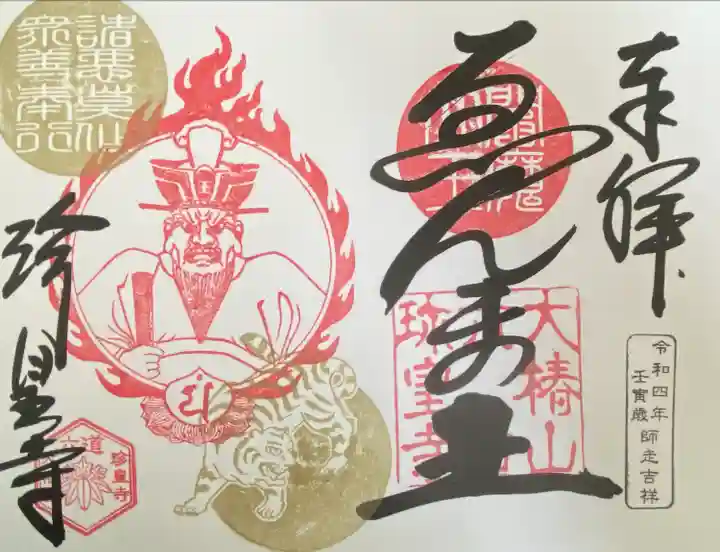 奉拝
令和四年
壬寅歳師走吉祥
ゑんま王
大椿山
珍皇寺
諸悪莫作
衆善奉行
王
六道
珍皇寺
珍皇寺